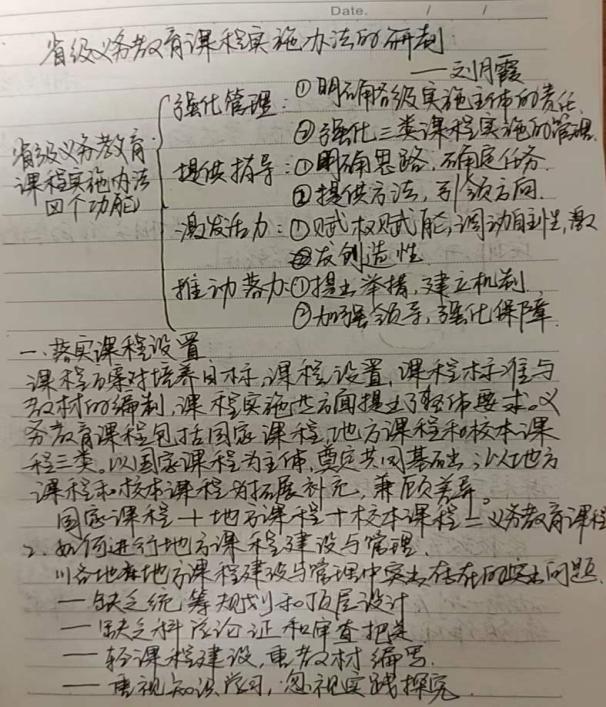 Date.　/　/
省级义务教育课程实施办法的研制
——刘月霞
省级义务教育课程实施办法四个功能
强化管理：①明确各级实施主体的责任
②强化三类课程实施的管理.
提供指导：①明确思路，确定任务.
②提供方法，引领方向.
激发活力：①赋权赋能，调动自主性，激
发创造性
推动落力：①提出举措，建立机制
②加强领导，强化保障
一、落实课程设置
课程方案对培养目标，课程设置，课程标准与
教材的编制，课程实施些方面提出了整体要求。义
务教育课程包括国家课程，地方课程和校本课
程三类。以国家课程为主体，奠定共同基础；以地方
课程和校本课程为拓展补充，兼顾差异。
国家课程＋地方课程＋校本课程＝义务教育课程
2、如何进行地方课程建设与管理.
(1)各地在地方课程建设与管理中突出存在的突出问题.
—缺乏统筹规划和顶层设计
—缺乏科学论证和审查把关
—轻课程建设，重教材编写.
—重视知识学习，忽视实践探究